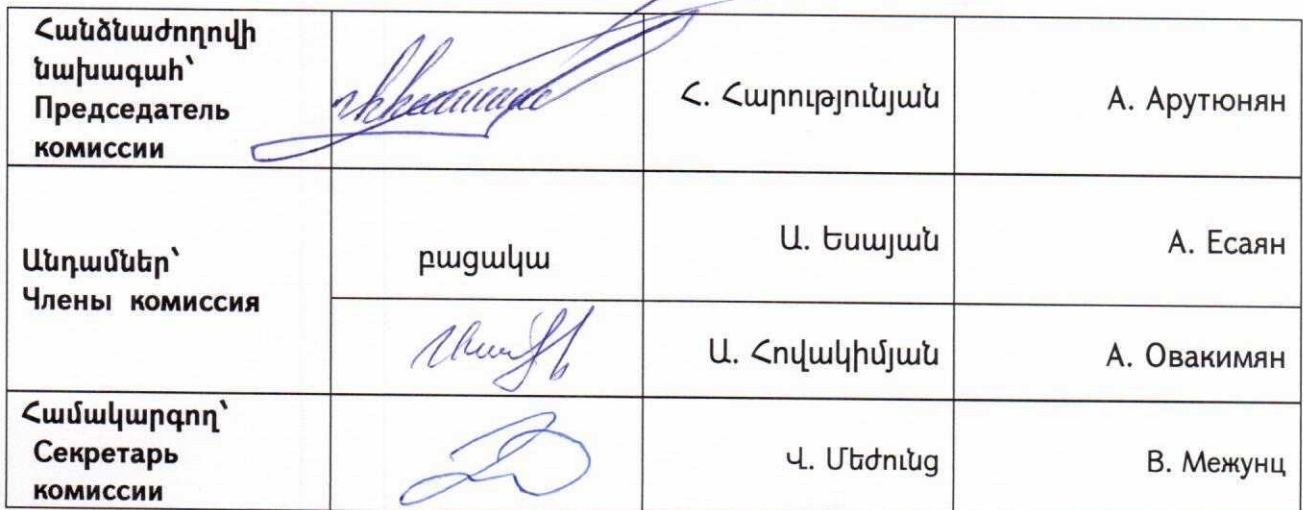 Հանձնաժողովի
նախագահ՝
Председатель
комиссии
Հ. Հարությունյան
А. Арутюнян
Անդամներ՝
Члены комиссия
բացակա
Ա. Եսայան
А. Есаян
Ա. Հովակիմյան
А. Овакимян
Համակարգող՝
Секретарь
комиссии
Վ. Մեժունց
В. Межунц